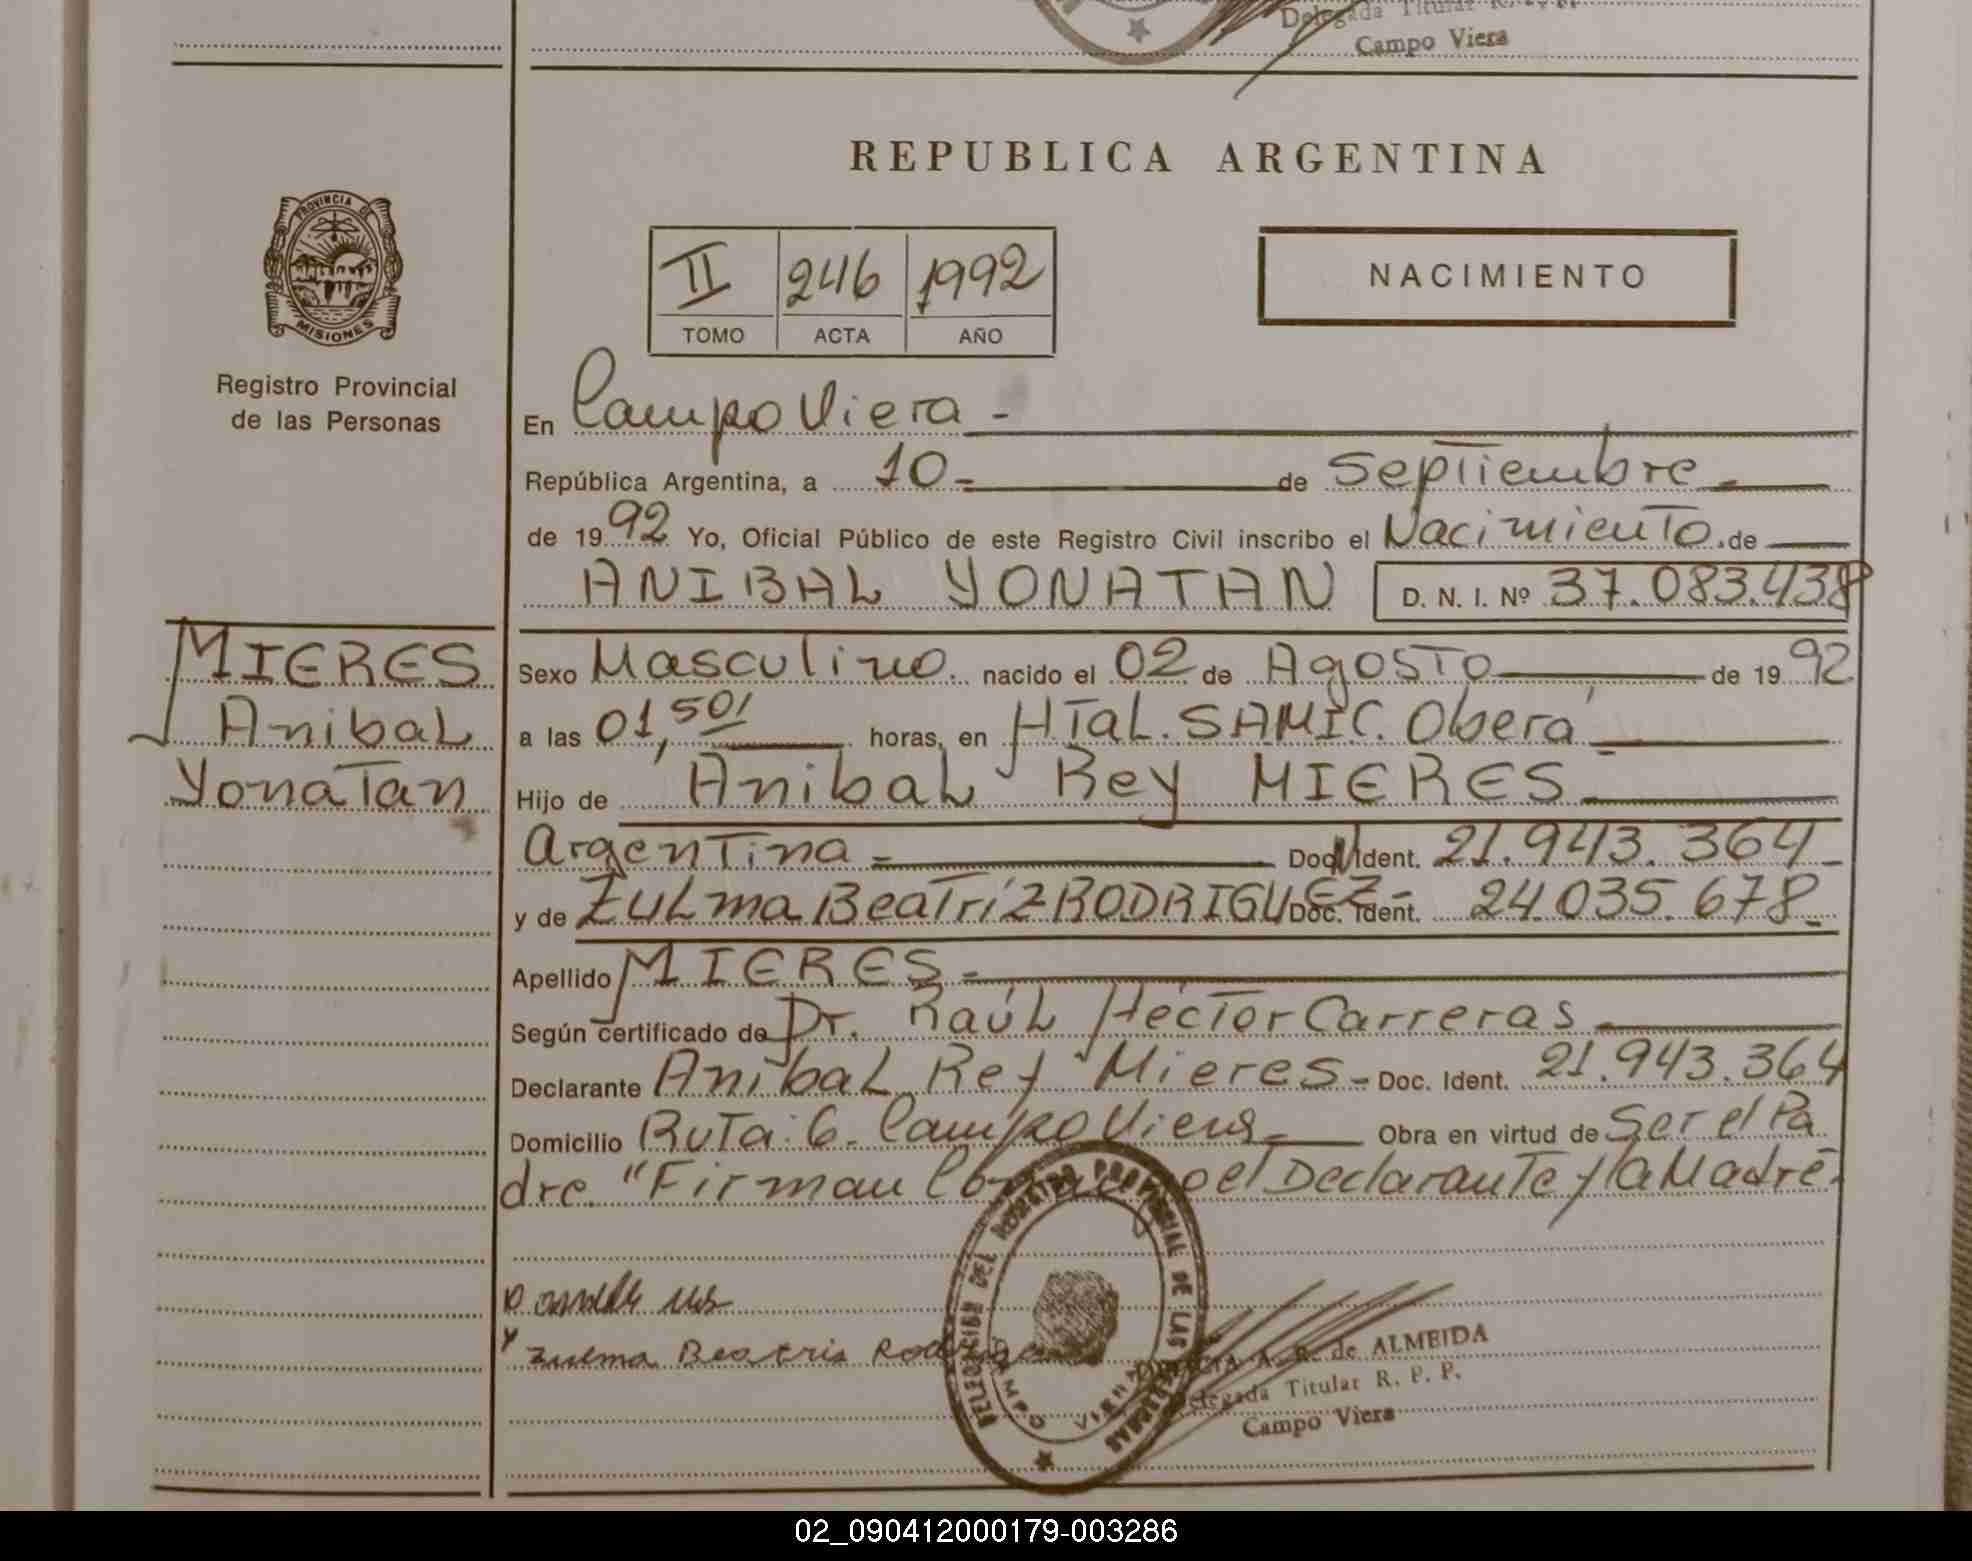 Delegada Titular R. P. P.
Campo Viera
REPUBLICA ARGENTINA
PROVINCIA DE
MISIONES
Registro Provincial
de las Personas
II 246 1992
TOMO ACTA AÑO
NACIMIENTO
En Campo Viera -
República Argentina, a 10- de Septiembre-
de 1992 Yo, Oficial Público de este Registro Civil inscribo el Nacimiento de
ANIBAL YONATAN D. N. I. Nº 37.083.438
MIERES
Anibal
Yonatan
Sexo Masculino nacido el 02 de Agosto de 1992
a las 01,50' horas, en HTal. SAMIC. Oberá
Hijo de Anibal Rey MIERES-
Argentina - Doc. Ident. 21.943.364-
y de Zulma Beatríz RODRIGUEZ- Doc. Ident. 24.035.678-
Apellido MIERES-
Según certificado de Dr. Raúl Héctor Carreras-
Declarante Anibal Rey Mieres- Doc. Ident. 21.943.364
Domicilio Ruta 6. Campo Viera- Obra en virtud de Ser el Pa
dre. "Firman Conmigo el Declarante y la Madre-
Zulma Beatris Rodrigues
DELEGACION DEL REGISTRO PROVINCIAL DE LAS PERSONAS
CAMPO VIERA
A. R. de ALMEIDA
Delegada Titular R. P. P.
Campo Viera
02_090412000179-003286